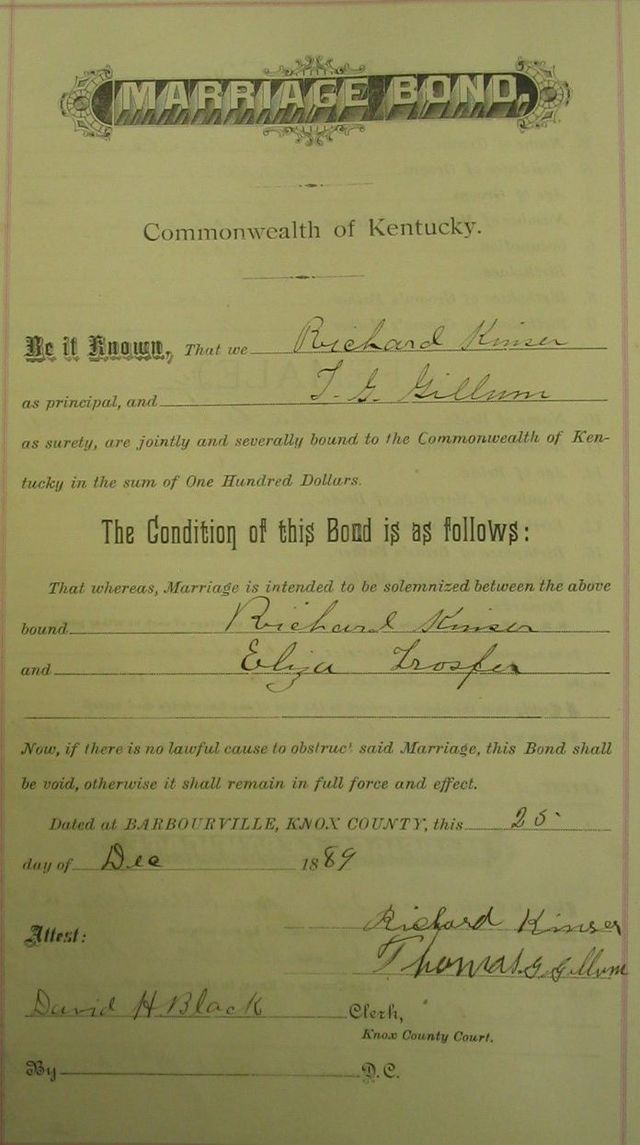 MARRIAGE BOND.
Commonwealth of Kentucky.
Be it Known, That we Richard Kinser
as principal, and T. G. Gillum
as surety, are jointly and severally bound to the Commonwealth of Ken-
tucky in the sum of One Hundred Dollars.
The Condition of this Bond is as follows:
That whereas, Marriage is intended to be solemnized between the above
bound Richard Kinser
and Eliza Trosper
Now, if there is no lawful cause to obstruct said Marriage, this Bond shall
be void, otherwise it shall remain in full force and effect.
Dated at BARBOURVILLE, KNOX COUNTY, this 25
day of Dec 1889
Richard Kinser
Attest:
Thomas G Gillum
David H Black Clerk,
Knox County Court.
By D.C.